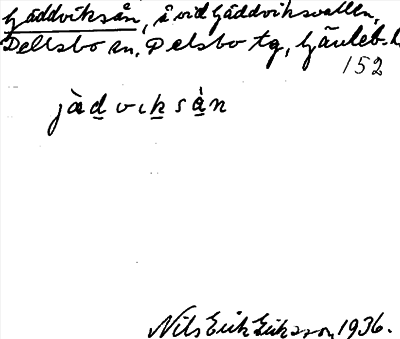 Gäddviksån, å vid Gäddviksvallen,
Dellsbo sn, Delsbo tg, Gävleb. l
152
jàdvıksån
Nils Erik Eriksson 1936.